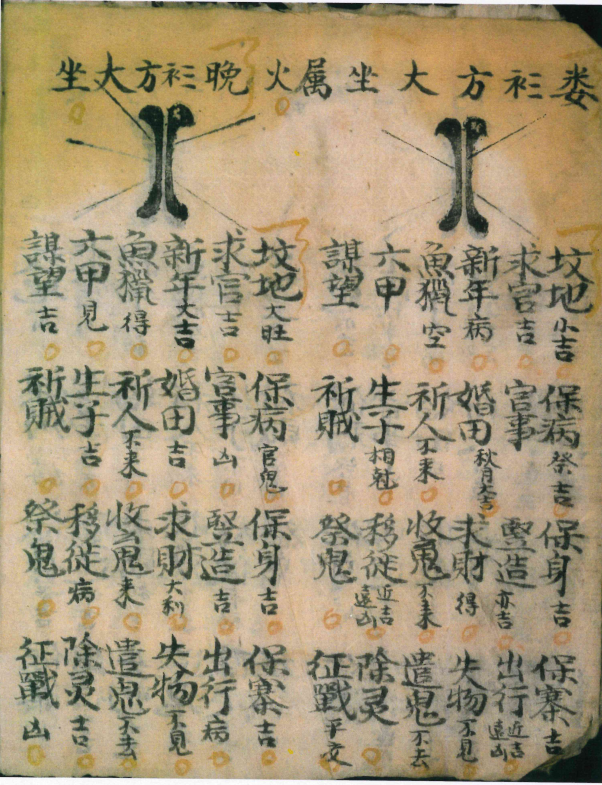 娄衫方大坐属火晚衫方大坐
坟地小吉 保病祭吉 保身吉 保寨吉
求官吉 官事 竪造亦吉 出行近吉遠凶
新年病 婚田秋月大吉 求財得 失物不見
魚獵空 祈人不来 收䰟不来 遣鬼不去
六甲 生子相 移徙近吉遠凶 除灵
謀望 祈賊 祭鬼 征戰平交
坟地大旺 保病官鬼 保身吉 保寨吉
求官吉 官事凶 竪造吉 出行病
新年大吉 婚田吉 求財大利 失物不見
魚獵得 祈人不来 收䰟来 遣鬼不去
六甲見 生子吉 移徙病 除灵吉
謀望吉 祈賊 祭鬼 征戰凶